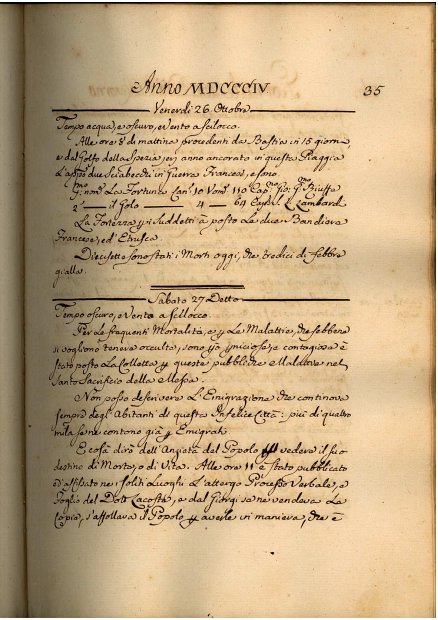 Anno MDCCCIV
35
Venerdi 26. Ottobre
Tempo acqua, e oscuro, e Vento a Scilocco.
Alle ore 8 di mattina procedenti da Bastia in 15 giorni,
e dal Golfo della Spezia jeri anno ancorato in questa Piaggia
Lapssi due Sciabecchi in Guerra Francesi, e sono.
P.mo nom.o La Fortuna Can.i 10 Vom.i 110 Cap.no Gio: G. Biuffa
2.o — il Golo — 4 — 64 Cap.no L. Lambard.
La Fortezza p i Suddetti à posto Le due Bandiere
Francese, ed' Etrusca.
Diecisette sono stati i Morti oggi, che tredici di febbre
gialla.
Sabato 27 Detto
Tempo oscuro, e Vento a scilocco.
Per Le frequenti Mortalità, e p Le Malattie, che sebbene
si vogliono tenere occulte, sono più perniciose, e contagiose è
stato posto La Colletta p queste pubbliche Malattie nel
Santo Sacrifico della Messa.
Non posso descrivere L'Emigrazione che continova
sempre degl'Abitanti di questa Infelice Città: più di quattro
mila se ne contono già p Emigrati.
E cosa dirò dell'Ansietà del Popolo p vedere il suo
destino di Morte, o di Vita. Alle ore 11 è stato pubblicato
ed'affissato ne' soliti Luoghi L'attergo Processo Verbale, e
Foglio del Dott. Lacoste, e dal Giorgi se ne vendeva La
Copia, s'affollava il Popolo p averle in maniera, che è